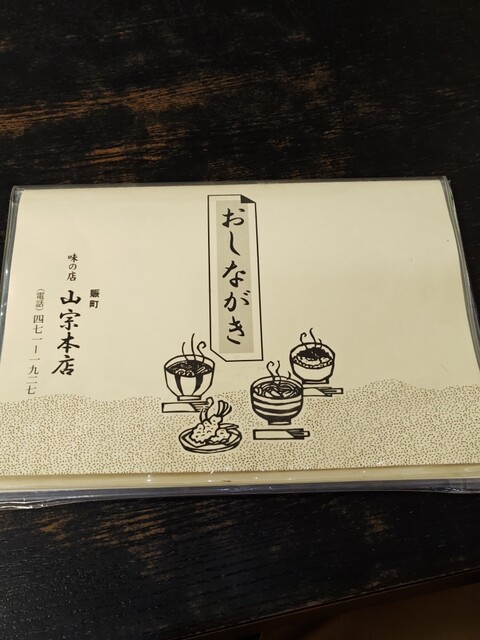 おしながき
賑町
味の店 山宗本店
(電話)四七一ー一九二七